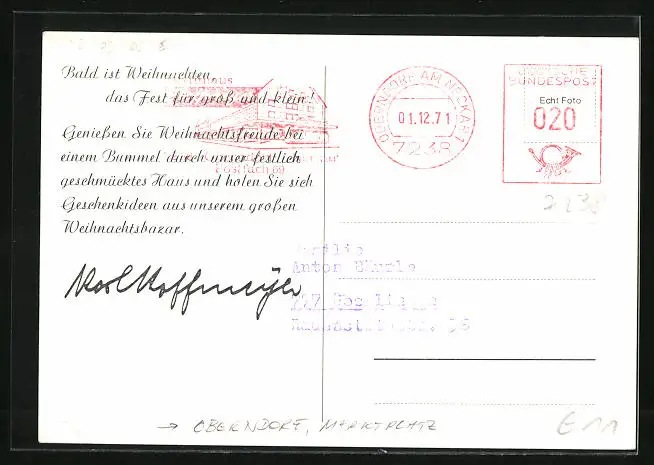 Bald ist Weihnachten,
das Fest für groß und klein!
Genießen Sie Weihnachtsfreude bei
einem Bummel durch unser festlich
geschmücktes Haus und holen Sie sich
Geschenkideen aus unserem großen
Weihnachtsbazar.
Postfach 69
OBERNDORF AM NECKAR 1
01.12.71
7238
DEUTSCHE
BUNDESPOST
Echt Foto
020
7238
Familie
Anton
→ OBERNDORF, MARKTPLATZ
E 11